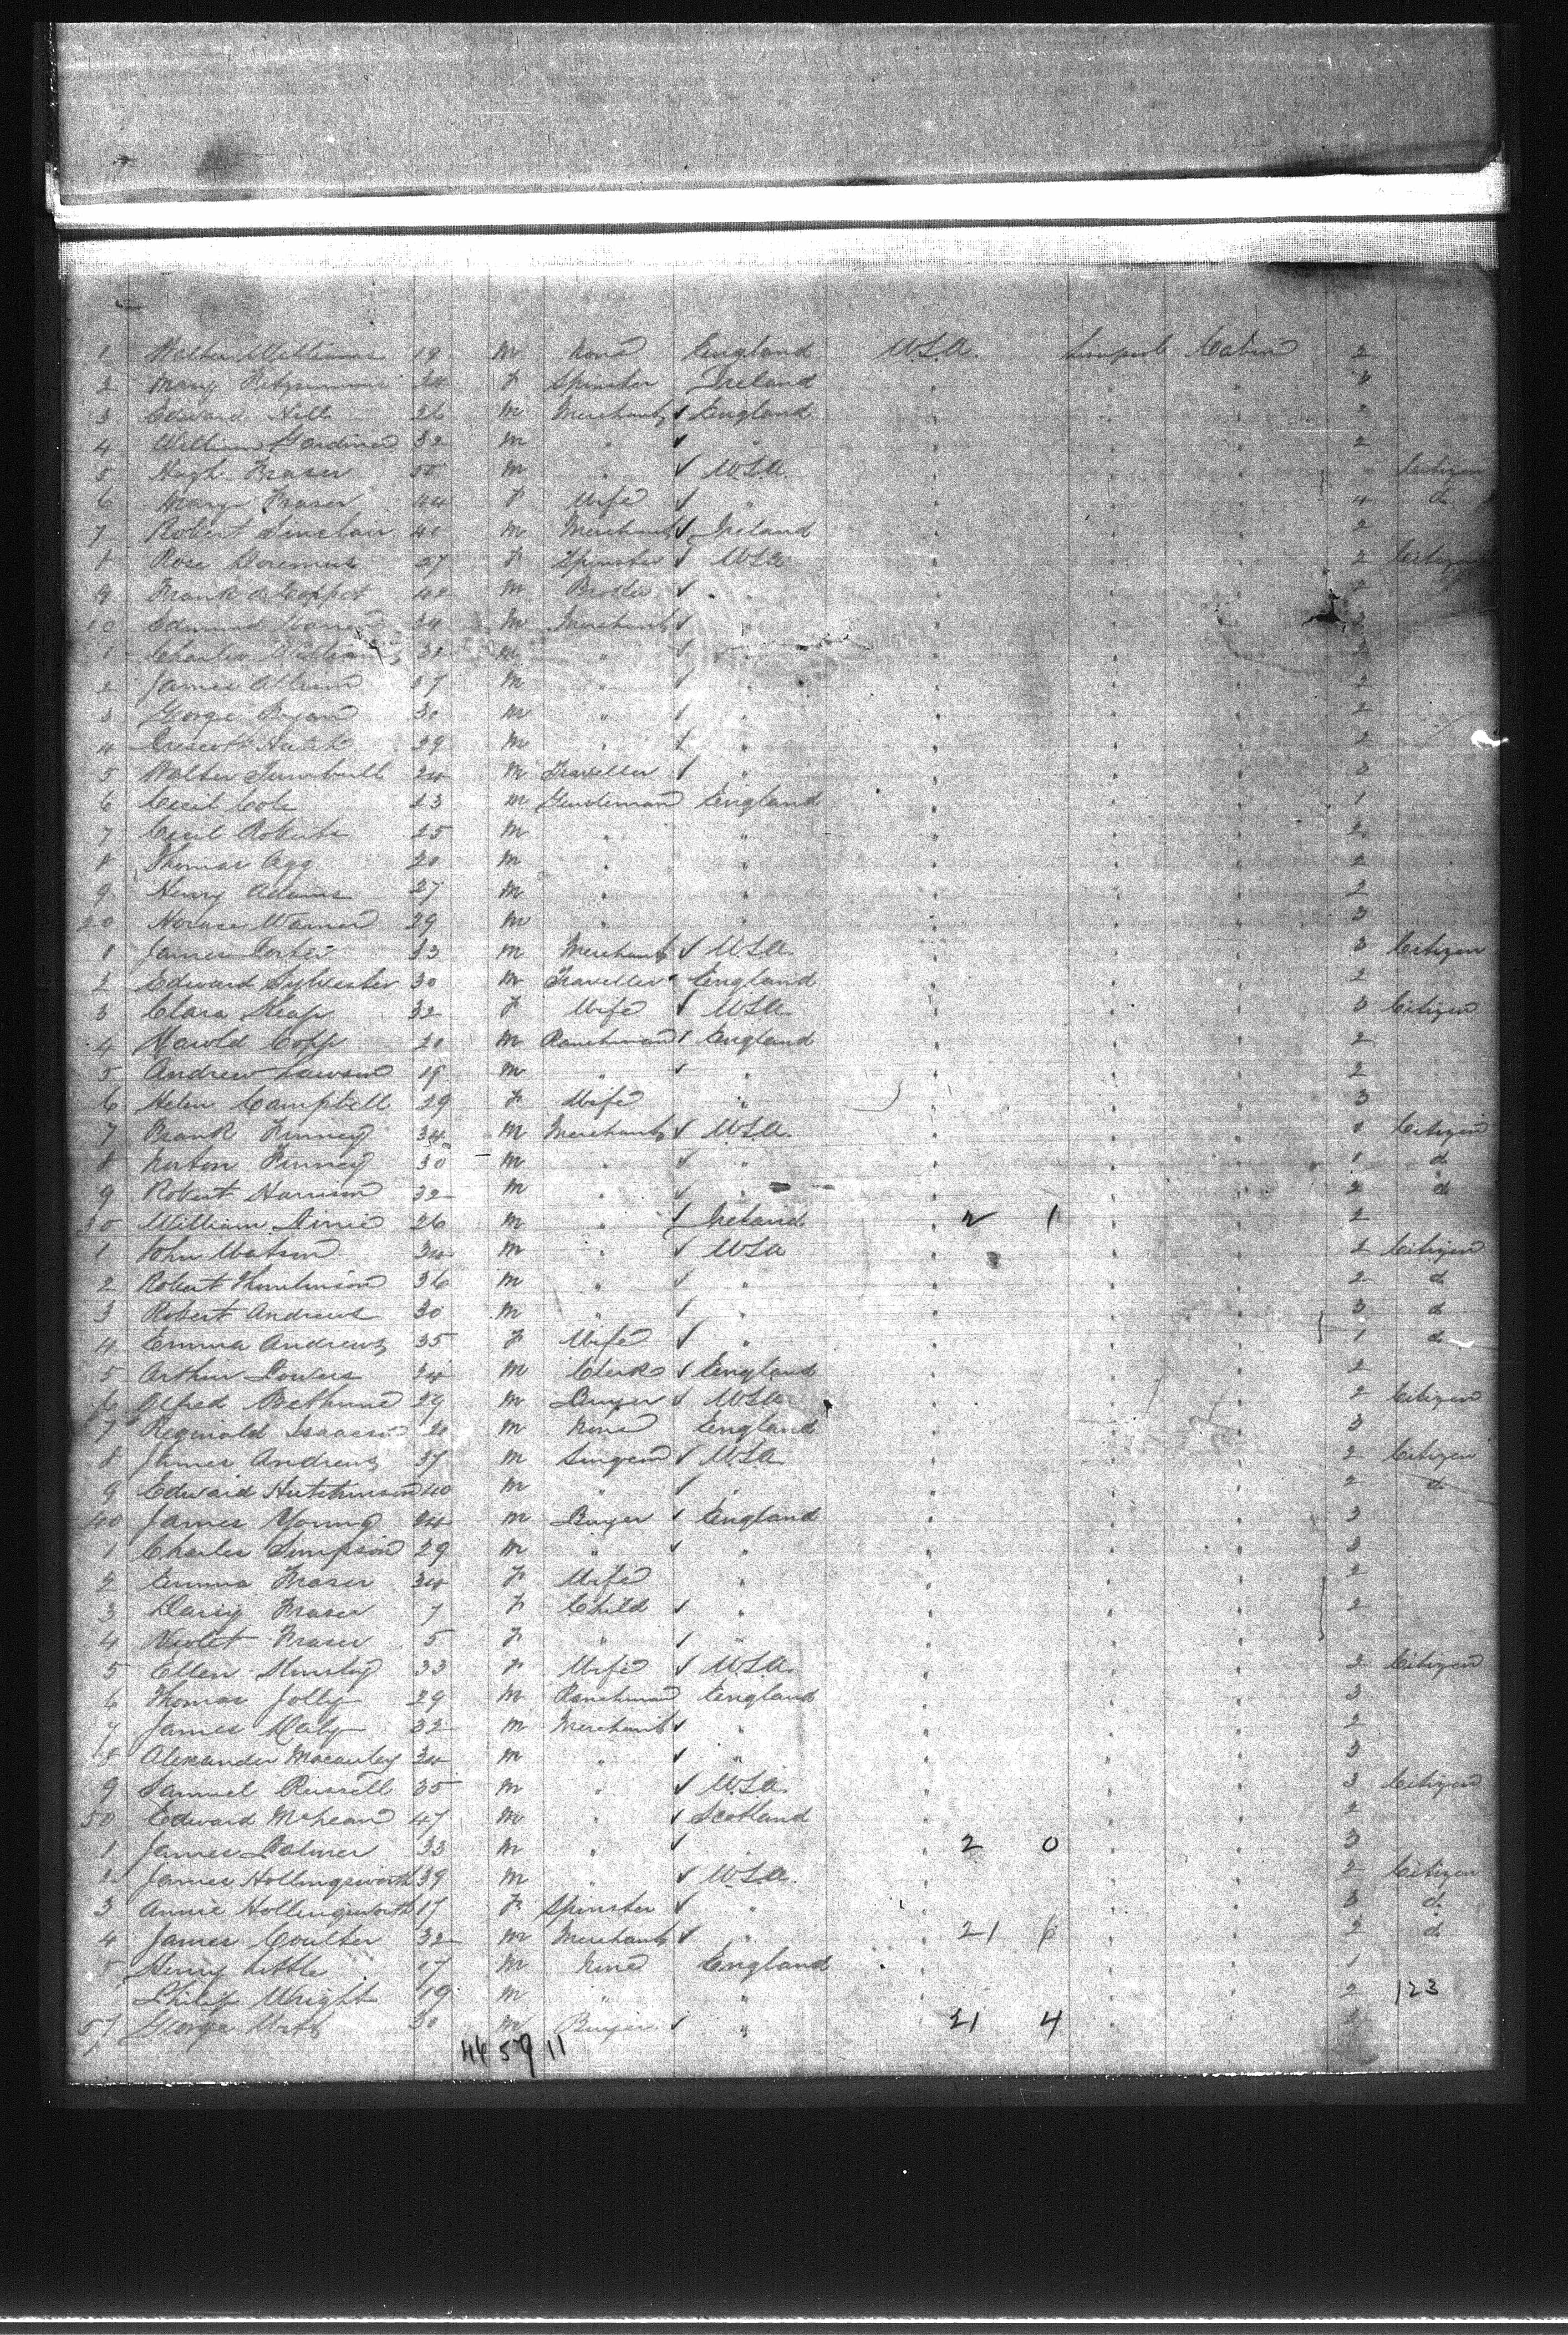 1 Walter Williams 19 m None England U.S.A. Liverpool Cabin 2
2 Mary Fitzsimmins 24 F Spinster Ireland " " "
3 Edward Hill 26 m Merchant England " " " 2
4 William Gardiner 32 m " " " " " 2
5 Hugh Fraser 55 m " U.S.A. " " " Citizen
6 Mary Fraser 44 F Wife " " " " 4 do
7 Robert Sinclair 40 m Merchant Ireland " " " 2
8 Rose Doremus 27 F Spinster U.S.A " " " 2 Citizen
9 Frank de Coppet 42 m Broker " " " " 2
10 Edmund 34 m Merchant " " " "
1 Charles Williams 30 m " " " " "
2 James 27 m " " " " " 2
3 George Ryan 30 m " " " " " 2
4 Prescott 29 m " " " " " 2
5 Walter Turnbull 24 m Traveller " " " " 3
6 Cecil Cole 23 m Gentleman England " " " 1
7 Cecil Roberts 25 m " " " " " 2
8 Thomas Agg 20 m " " " " " 2
9 Henry Adams 27 m " " " " " 2
20 Horace Warner 29 m " " " " " 3
1 James Porter 33 m Merchant U.S.A. " " " 3 Citizen
2 Edward Sylvester 30 m Traveller England " " " 2
3 Clara Heap 32 F Wife U.S.A. " " " 3 Citizen
4 Harold Copp 20 m Ranchman England " " " 2
5 Andrew Lawson 19 m " " " " " 2
6 Helen Campbell 29 F Wife " " " " 3
7 Frank Finney 34 m Merchant U.S.A. " " " Citizen
8 Norton Finney 30 m " " " " " 1 do
9 Robert Harrison 32 m " " " " " 2 do
30 William 26 m " Ireland 2 1 " " 2
1 John Watson 34 m " U.S.A " " " 2 Citizen
2 Robert Thomlinson 36 m " " " " " 2 do
3 Robert Andrews 30 m " " " " " 3 do
4 Emma Andrews 35 F Wife " " " " 1 do
5 Arthur Powers 24 m Clerk England " " " 2
6 Alfred Bethune 29 m Buyer U.S.A. " " " 2 Citizen
7 Reginald Isaacson 20 m None England " " " 3
8 James Andrews 37 m Surgeon U.S.A. " " " 2 Citizen
9 Edward Hutchinson 40 m " " " " " 2 do
40 James Young 24 m Buyer England " " " 3
1 Charles Simpson 29 m " " " " " 3
2 Emma Fraser 34 F Wife " " " " 2
3 Daisy Fraser 7 F Child " " " " 2
4 Violet Fraser 5 F " " " " "
5 Ellen 33 F Wife U.S.A. " " " 2 Citizen
6 Thomas Jolly 29 m Ranchman England " " " 3
7 James Daly 32 m Merchant " " " " 2
8 Alexander Macauley 34 m " " " " " 3
9 Samuel Russell 35 m " U.S.A. " " " 3 Citizen
50 Edward McLean 47 m " Scotland " " " 2
1 James Palmer 33 m " " 2 0 " " 3
2 James Hollingsworth 39 m " U.S.A. " " " 2 Citizen
3 Annie Hollingsworth 17 F Spinster " " " " 3 do
4 James Coulter 32 m Merchant " 21 6 " " 2 do
5 Henry Little 17 m None England " " " 1
Philip Wright 19 m " " " " " 2 123
57 George 30 m Buyer " 21 4 " "
46 57 11